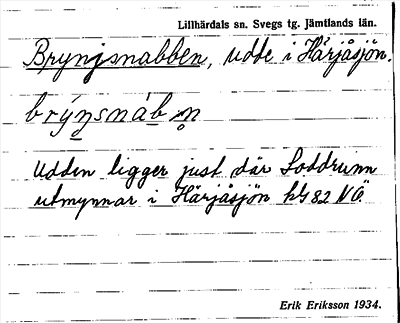 Lillhärdals sn. Svegs tg. Jämtlands län.
Brynjsnabben, udde i Härjåsjön.
Udden ligger just där Loddrunn
utmynnar i Härjåsjön kbl 82 NÖ.
Erik Eriksson 1934.